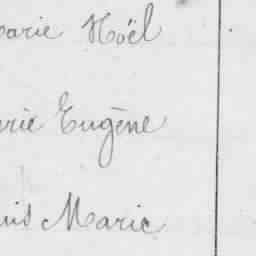 arie Noël
rie Eugène
uis Marie